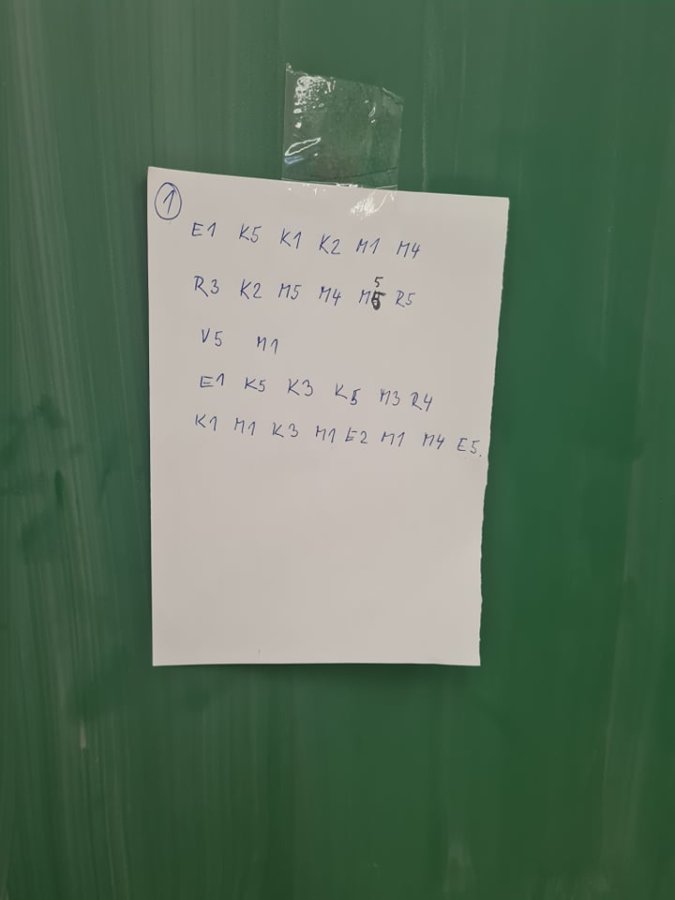 1
E1 K5 K1 K2 M1 M4
R3 K2 M5 M4 M5 R5
V5 M1
E1 K5 K3 K5 M3 R4
K1 M1 K3 M1 E2 M1 M4 E5.